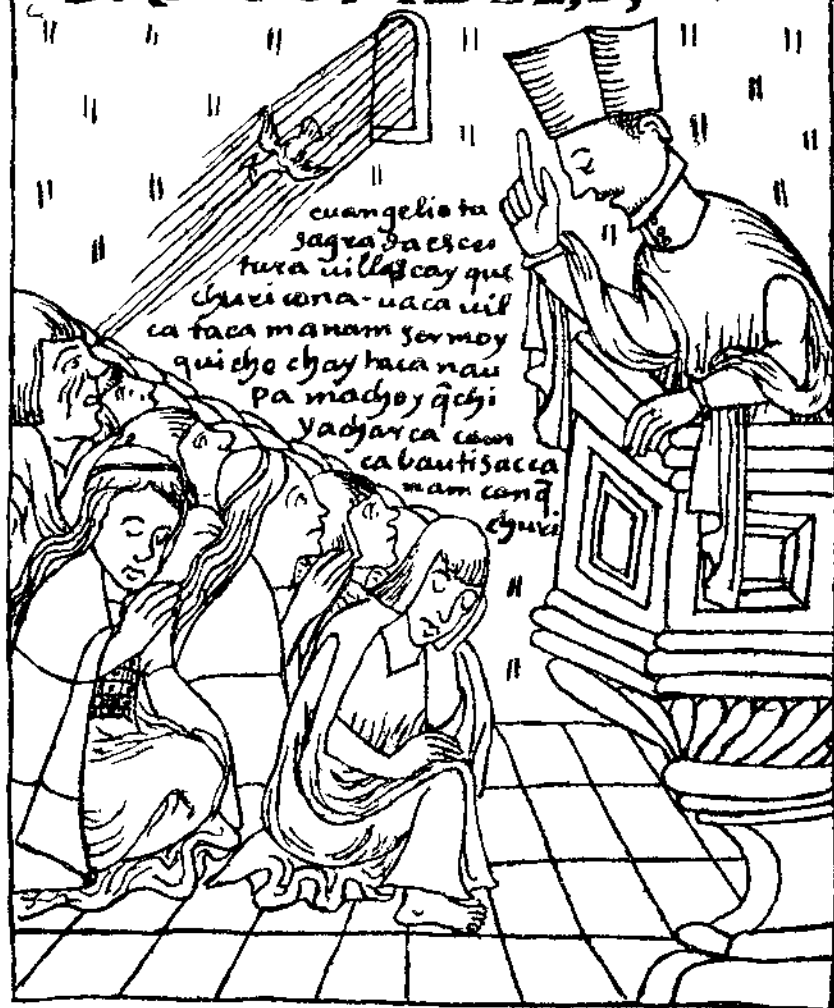 euangelio ta
sagrada escri
tura uillascay que
churicona-uaca uil
ca taca manam sermoy
quicho chaytaca nau
pa machoyq̃chi
yacharca cam
ca bautisacca
nam canq̃
churi